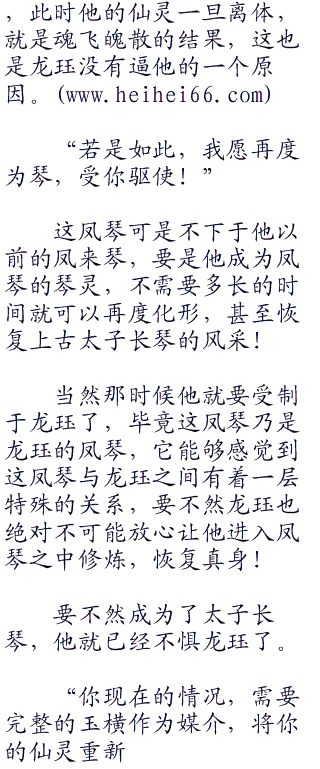 ，此时他的仙灵一旦离体，
就是魂飞魄散的结果，这也
是龙珏没有逼他的一个原
因。(www.heihei66.com)
“若是如此，我愿再度
为琴，受你驱使！”
这凤琴可是不下于他以
前的凤来琴，要是他成为凤
琴的琴灵，不需要多长的时
间就可以再度化形，甚至恢
复上古太子长琴的风采！
当然那时候他就要受制
于龙珏了，毕竟这凤琴乃是
龙珏的凤琴，它能够感觉到
这凤琴与龙珏之间有着一层
特殊的关系，要不然龙珏也
绝对不可能放心让他进入凤
琴之中修炼，恢复真身！
要不然成为了太子长
琴，他就已经不惧龙珏了。
“你现在的情况，需要
完整的玉横作为媒介，将你
的仙灵重新